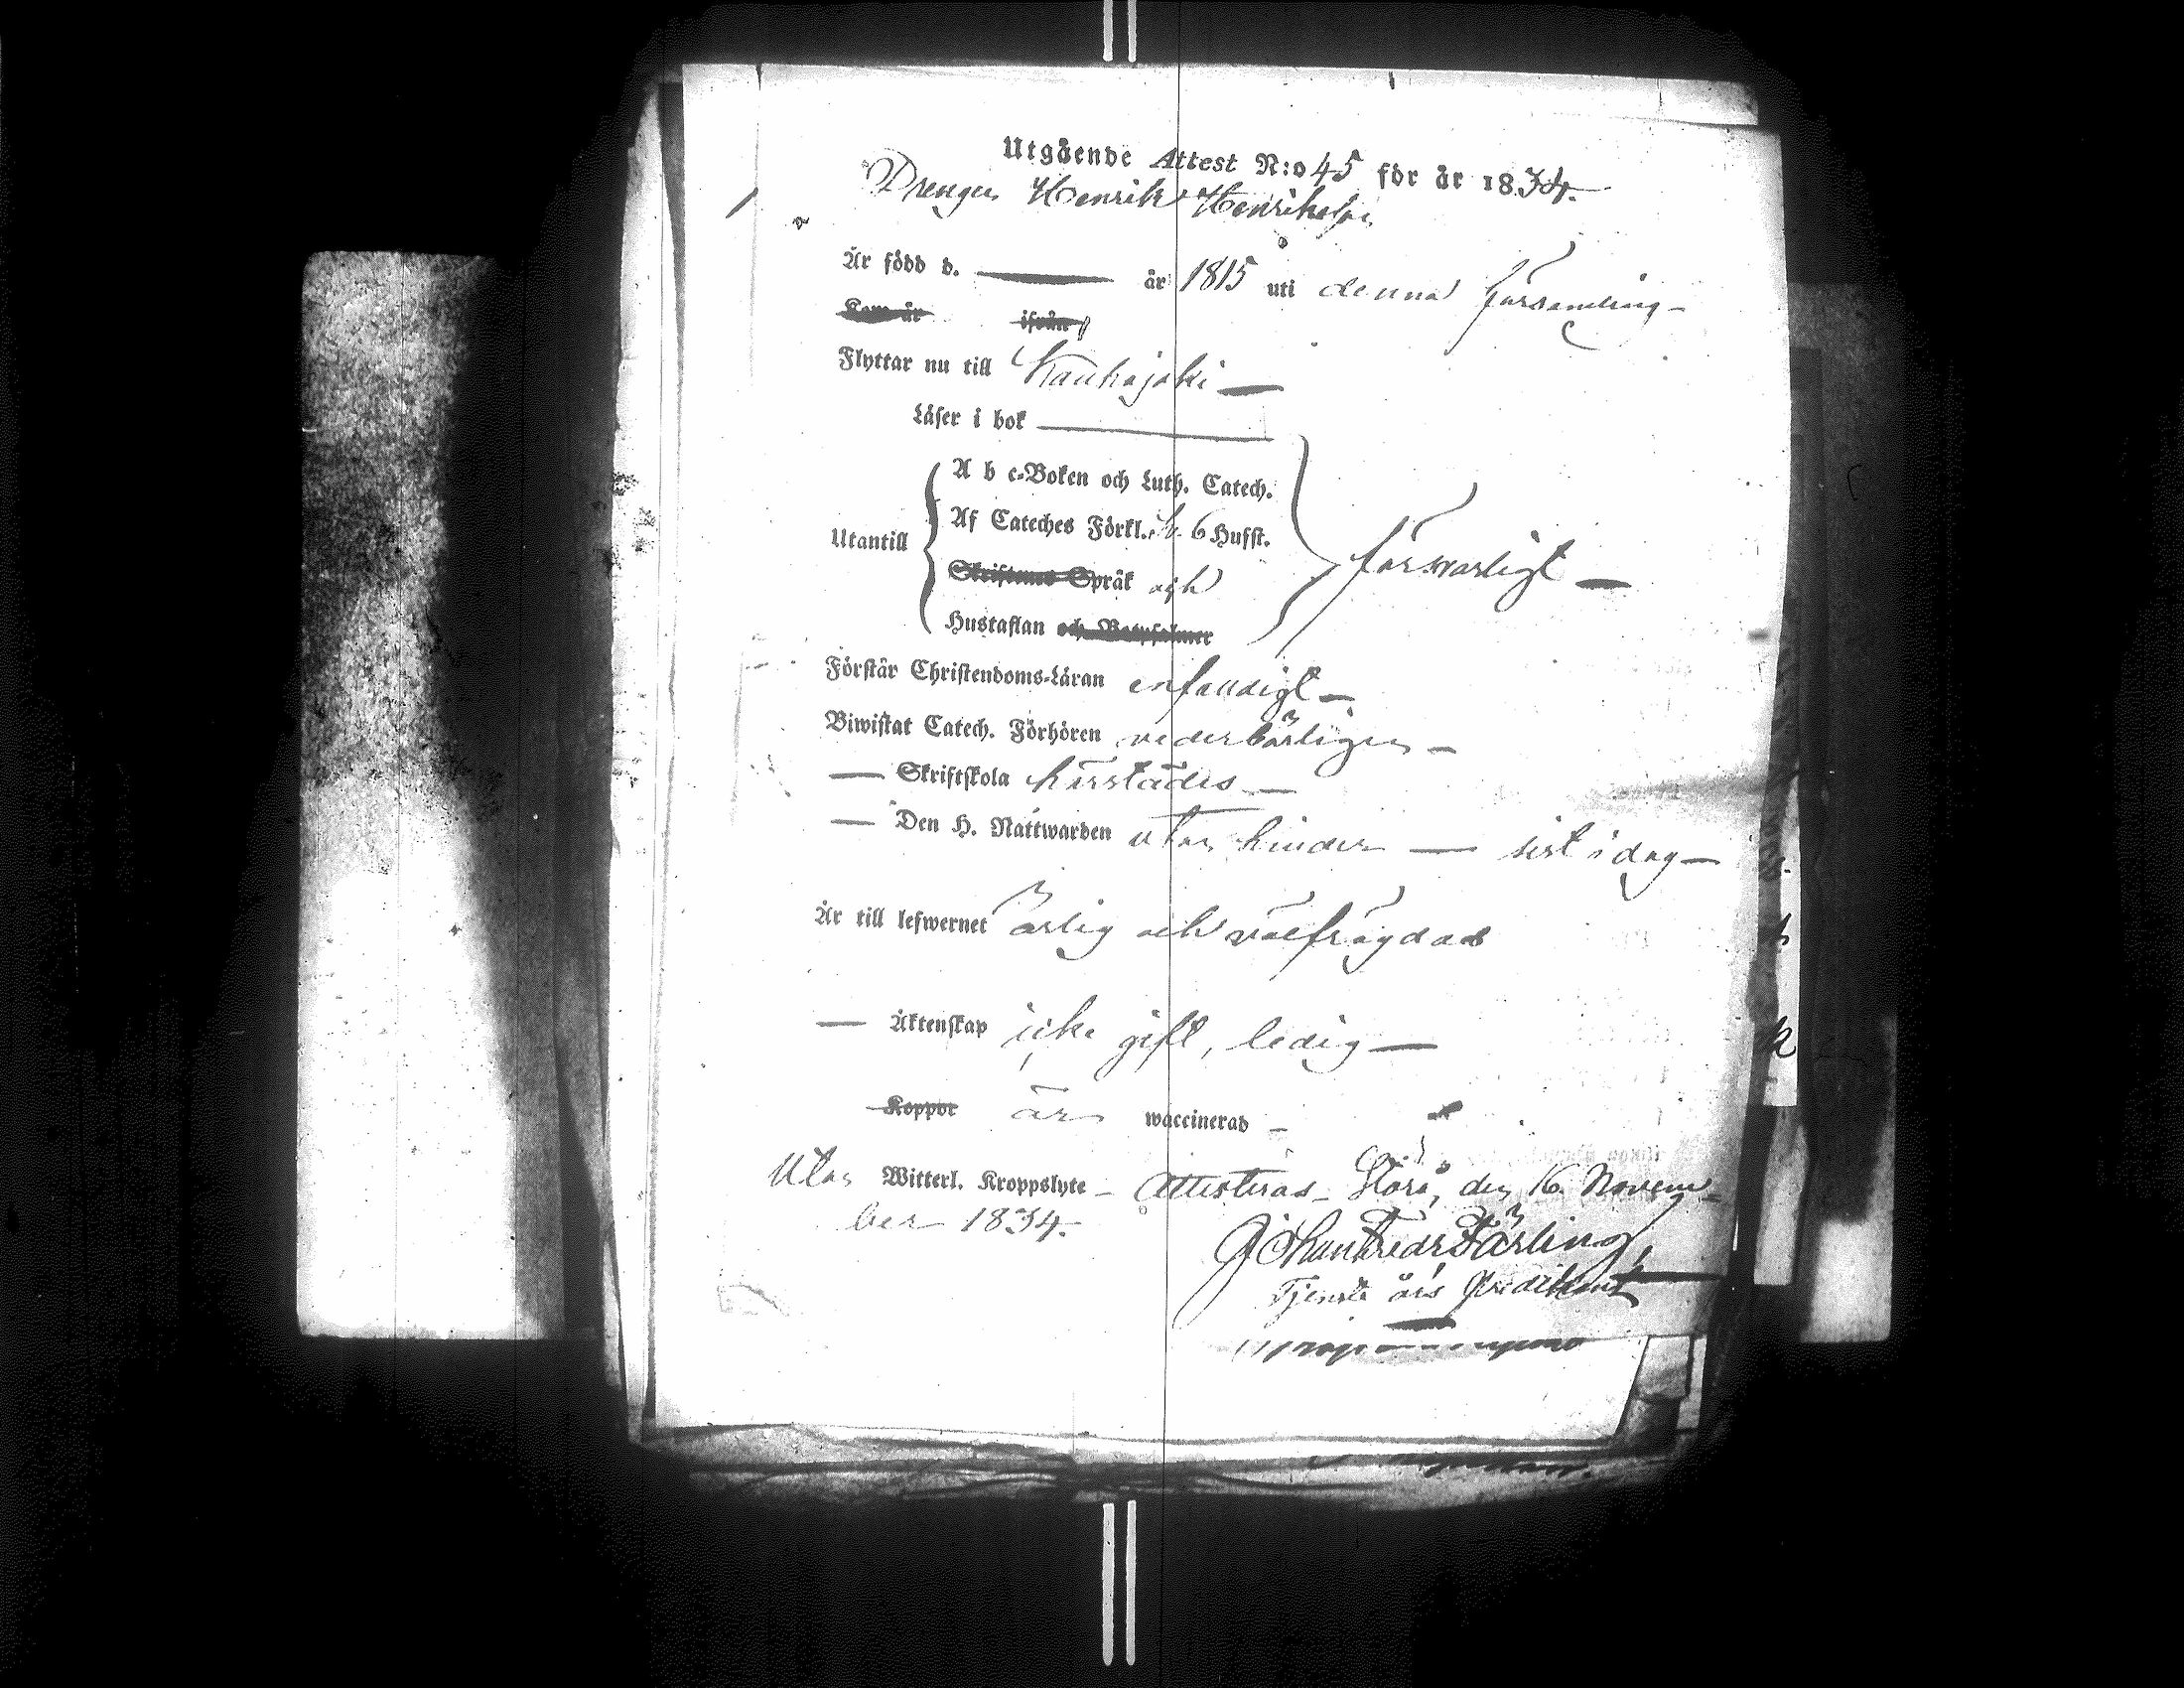 Utgående Attest N:o 45 för år 1834.
Drengen Henrik Henriksson
Är född d. — år 1815 uti denna församling -
Kom år ifrån
Flyttar nu till Kauhajoki —
Läser i bok —
A b c-Boken och Luth. Catech.
Af Cateches Förkl. 6 Hufst.
Utantill försvarligt —
Skriftenes Språk och
Hustaflan och Botpsalmer
Förstår Christendoms-Läran enfaldigt —
Biwistat Catech. Förhören vederbörligen —
— Skriftskola härstädes —
— Den H. Nattwarden utan hinder — sist i dag —
Är till lefwernet ärlig och välfrägdad
— Äktenskap icke gift, ledig —
Koppor är waccinerad -
Utan Witterl. Kroppslyte - Attesteras - Storå, den 16. Novem-
ber 1834.